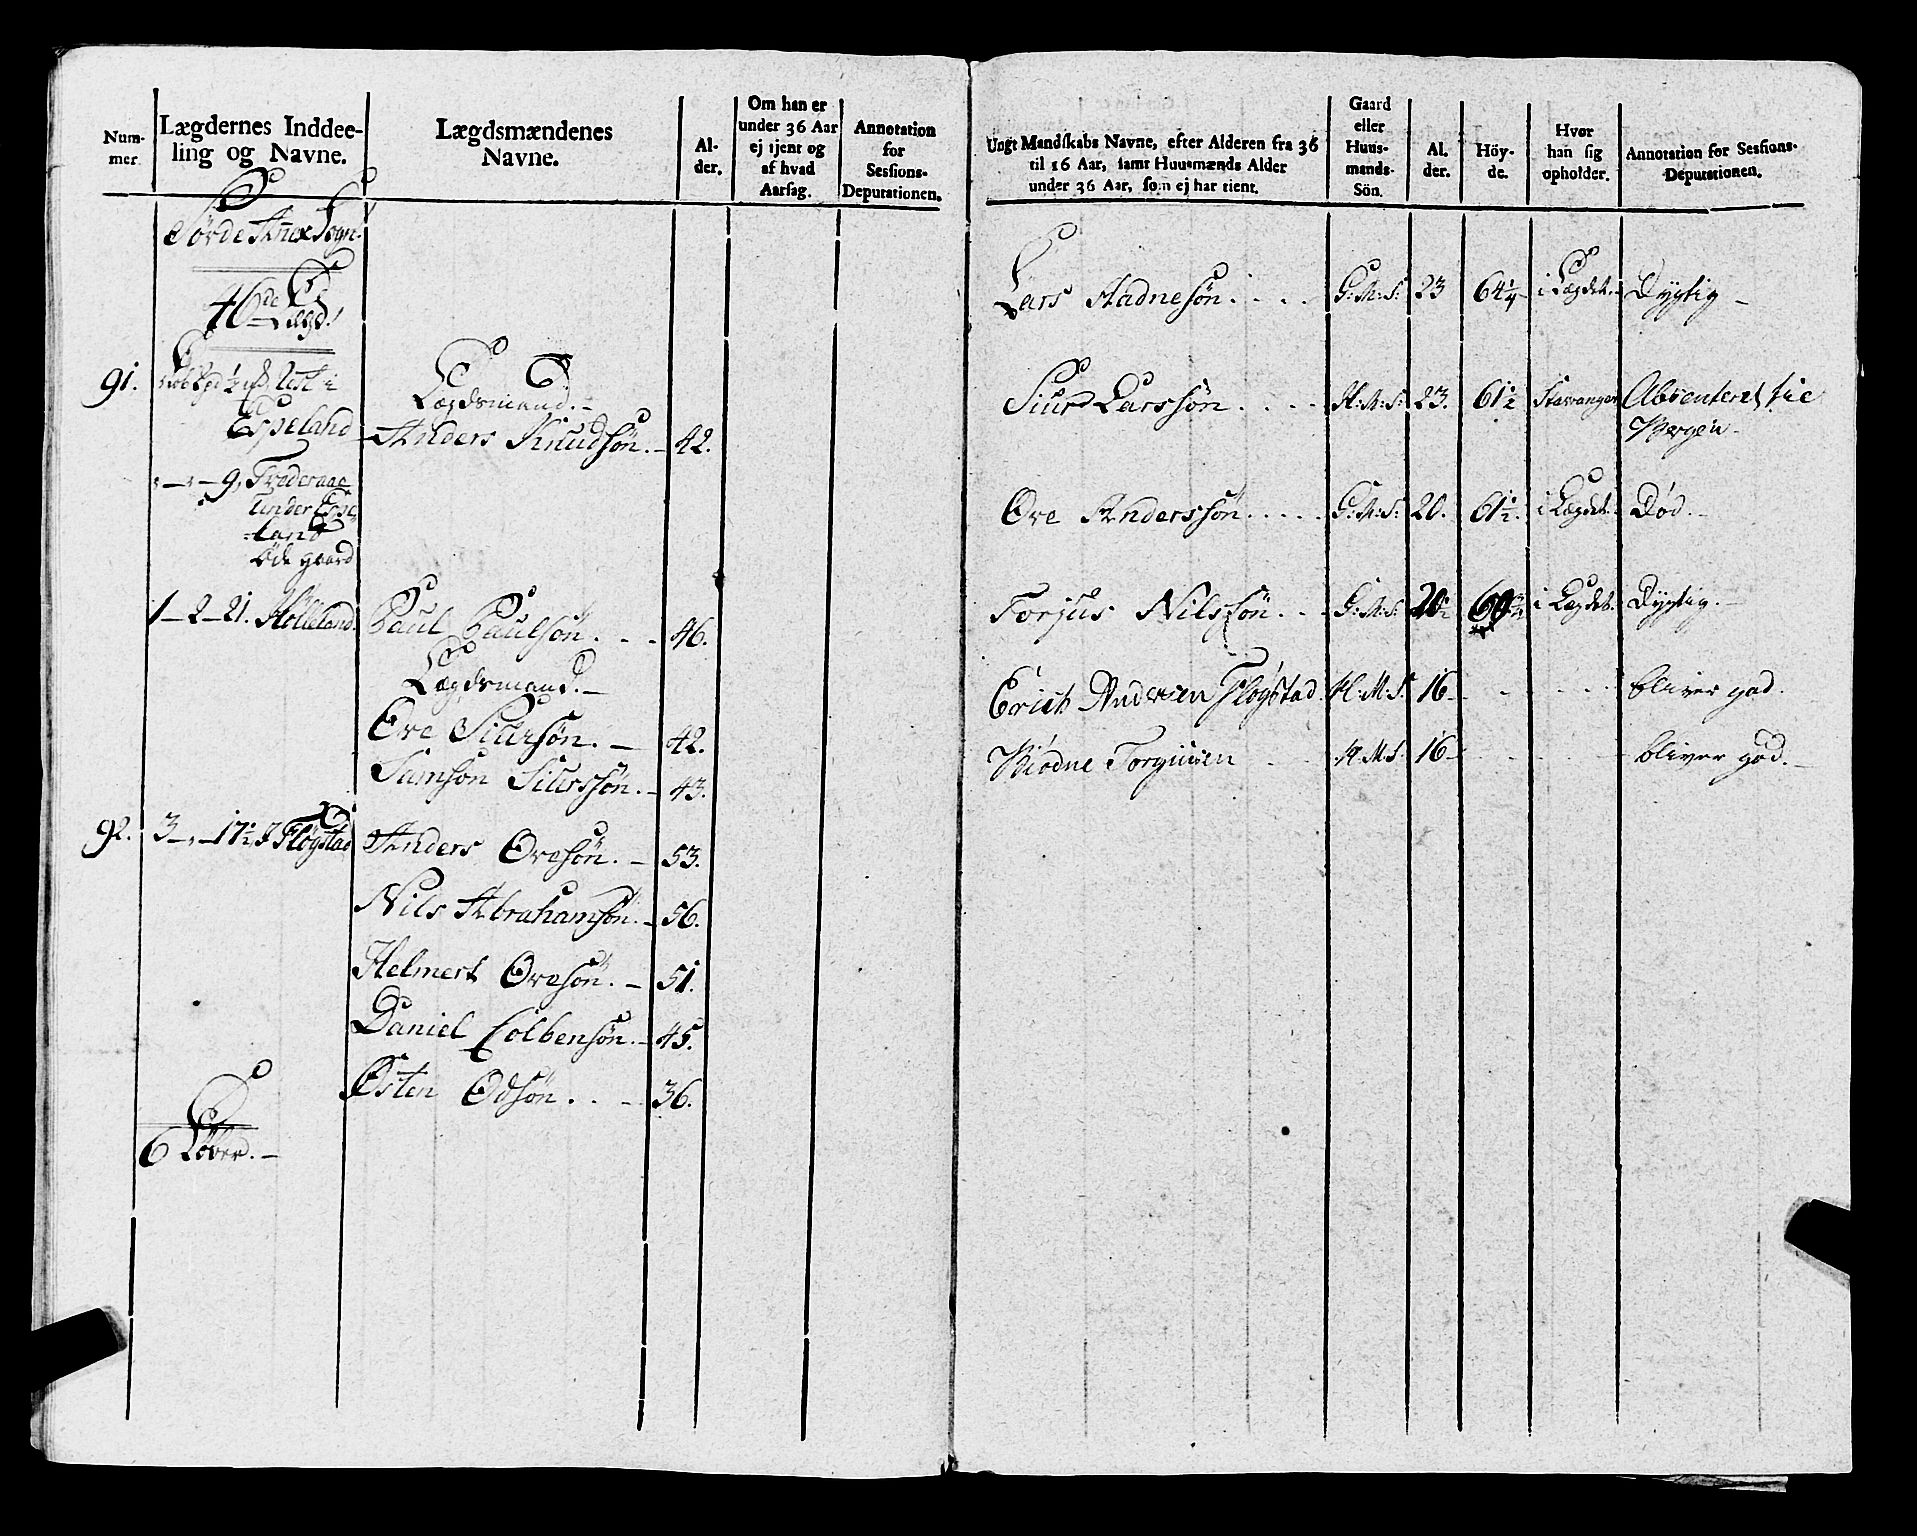 Num-
mer.
Lægdernes Inddee-
ling og Navne.
Lægdsmændenes
Navne.
Al-
der.
Om han er
under 36 Aar
ej tjent og
af hvad
Aarsag.
Annotation
for
Sessions-
Deputationen.
Sørde Anex Sogn.
46de Lægd.
91.
Espeland
Lægdsmand.
Anders Knudsøn. 42.
9. Frøderaae
under Espe-
land
Øde gaard
1-2-21. Holleland. Paul Paulsøn. 46.
Lægdsmand.
Ove Siursøn. 42.
Samson Siurssøn. 43.
92. 3 - 17½ Fløgstad Anders Ovesøn. 53.
Nils Abrahamsøn. 56.
Helmert Ovesøn. 51.
Daniel Colbensøn. 45.
Østen Odsøn. 36.
6 Løber.
Ungt Mandskabs Navne, efter Alderen fra 36
til 16 Aar, samt Huusmænds Alder
under 36 Aar, som ej har tient.
Gaard
eller
Huus-
mands-
Sön.
Al-
der.
Höy-
de.
Hvor
han sig
opholder.
Annotation for Sessions-
Deputationen.
Lars Aadnesøn. G: M: S: 23 64¼ i Lægdet. Dygtig
Siurd Larssøn. H: M: S: 23. 61½ Stavanger Absenteret til
Bergen
Ove Anderssøn. G: M: S: 20. 61½. i Lægdet. Død.
Torjus Nilssøn. G: M: S: i Lægdet. Dygtig.
Erich Andersen Fløgstad. H. M. S. 16 bliver god.
Biødne Torgiusen H. M. S. 16 bliver god.